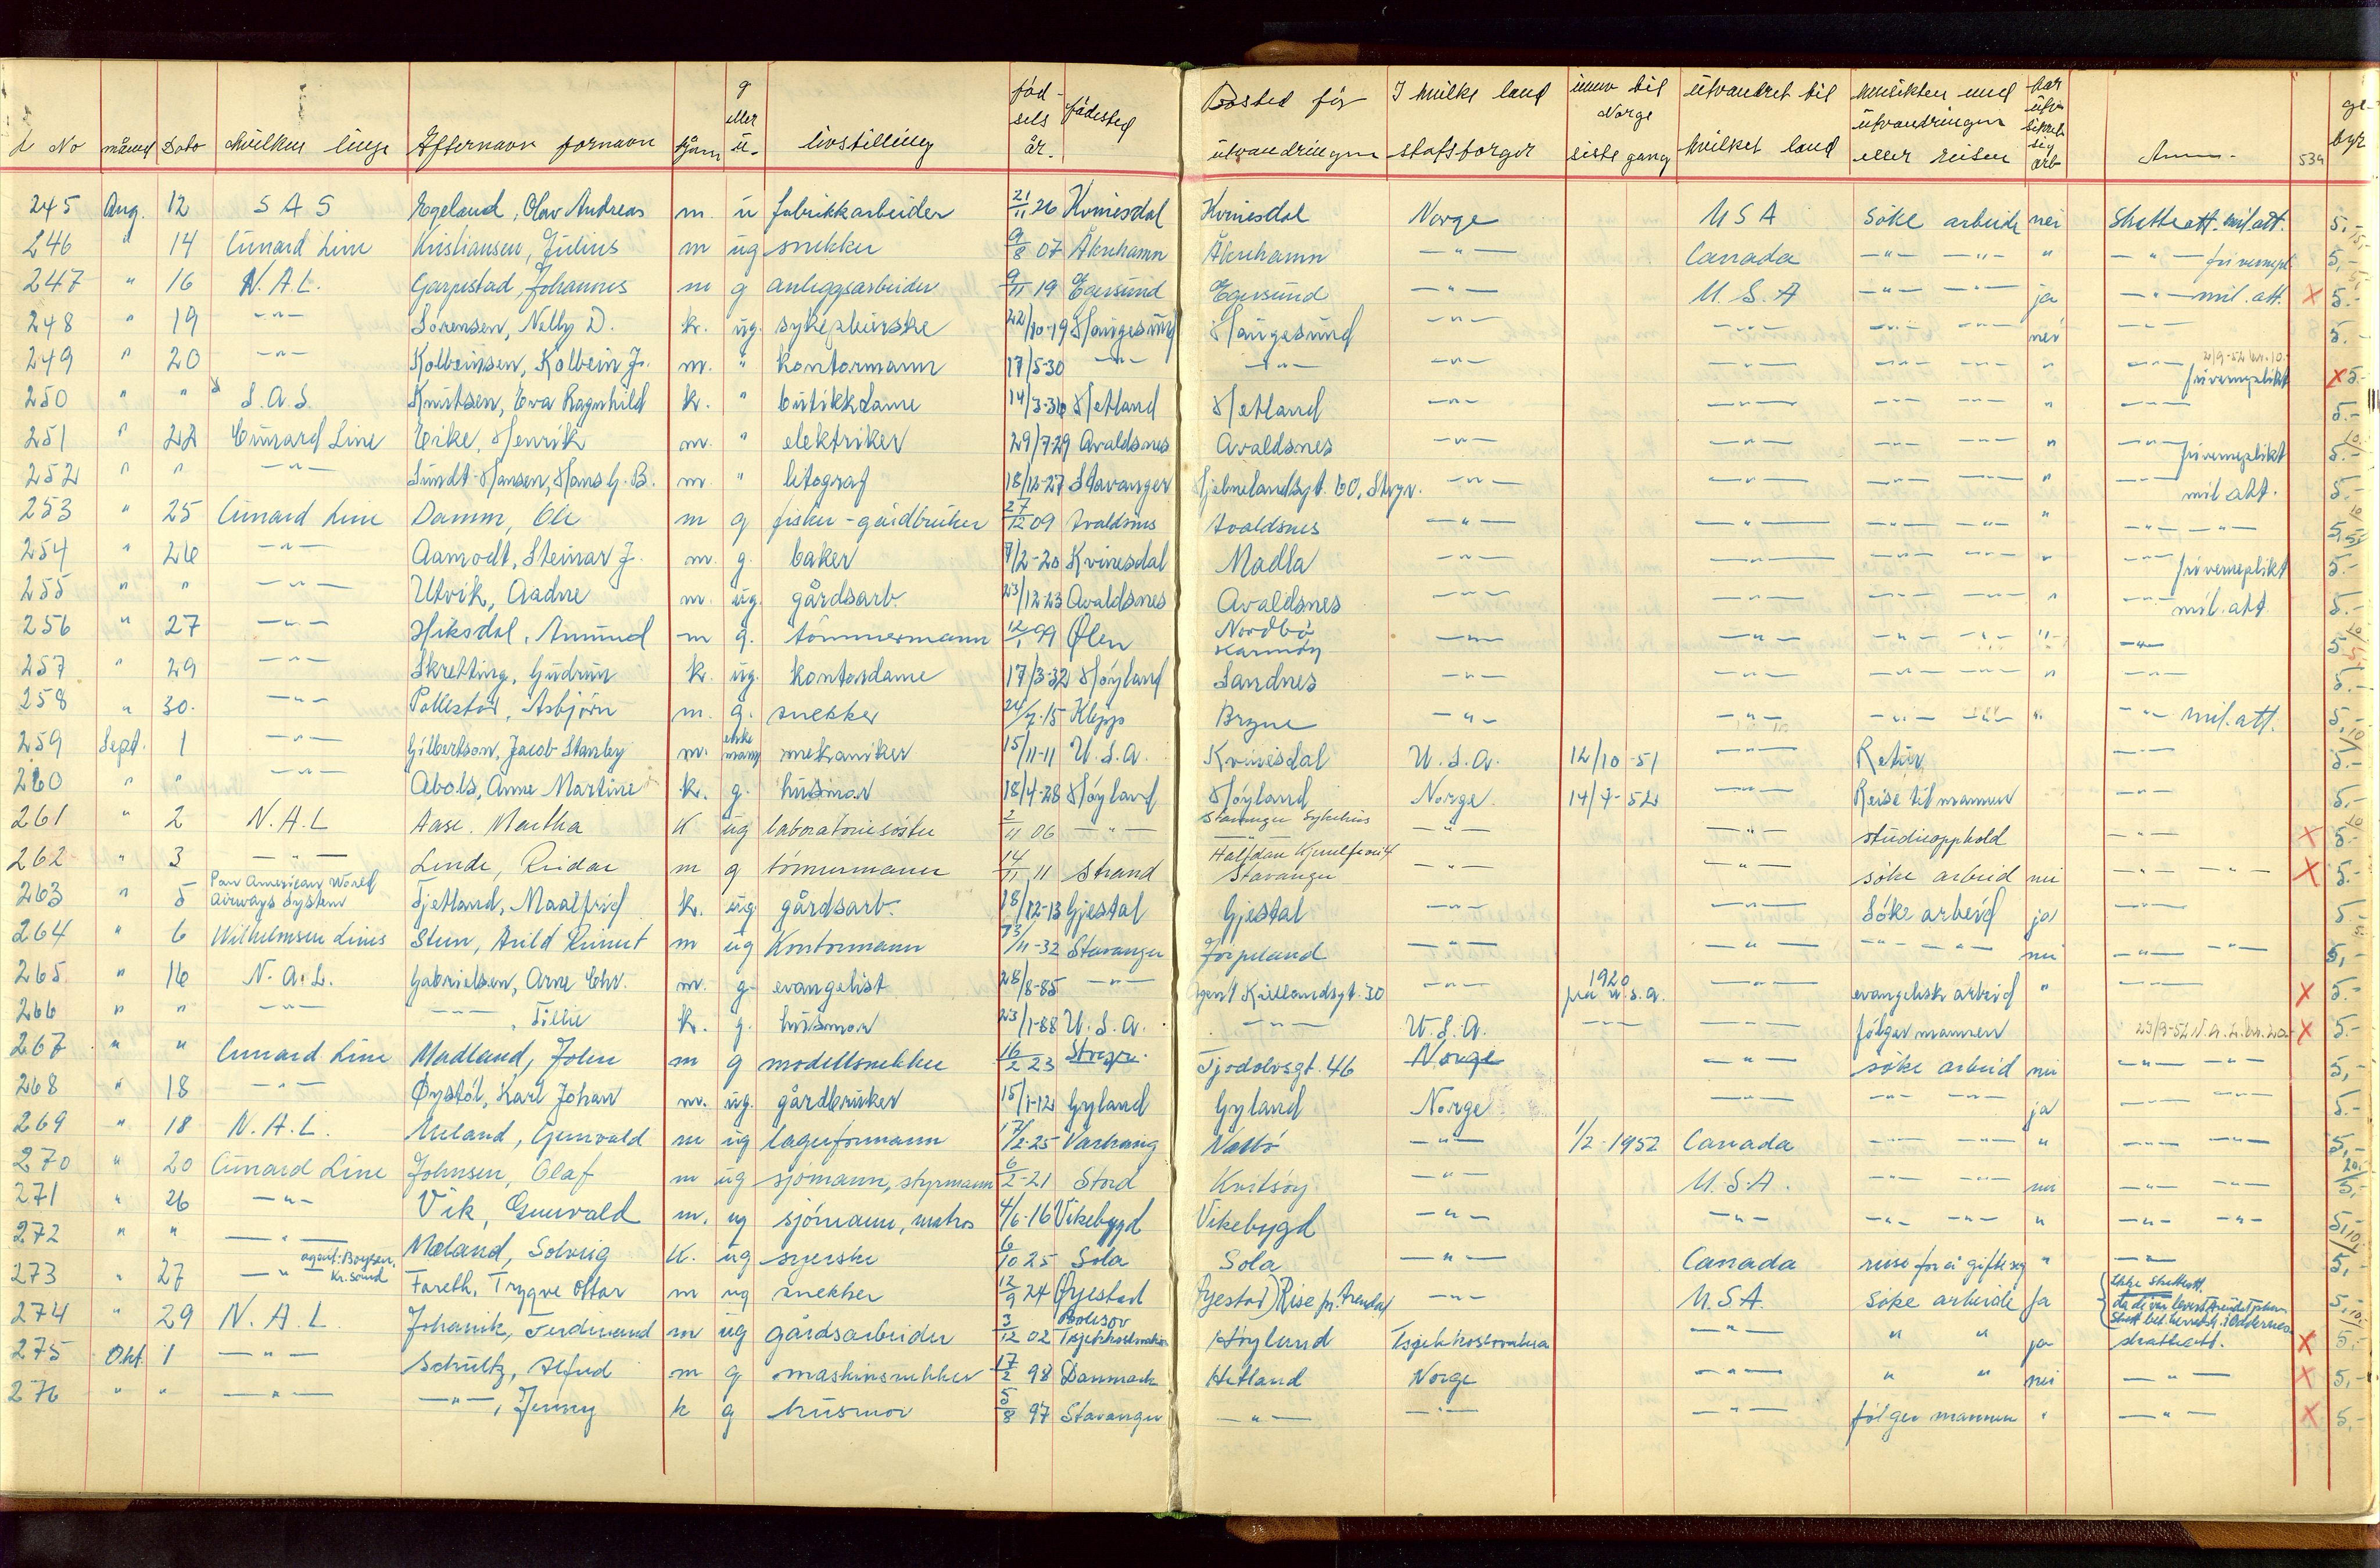 L No måned Dato Hvilken linje Efternavn fornavn kjønn g eller u- livstilling fødselsår. fødested Bosted før utvandringen I hvilke land statsborger innv til Norge siste gang utvandret til hvilket land hensikten med utvandringen eller reisen har utv. sikret sig arb Anm- 534 gebyr
245 Aug. 12 S A S Egeland, Olav Andreas m u fabrikkarbeider 21/11 26 Kvinesdal Kvinesdal Norge U S A Söke arbeide nei Skatteatt. mil. att. 5,-
246 " 14 Cunard Line Kristiansen, Julius m ug snekker 9/8 07 Åkrehamn Åkrehamn -"- Canada -"- -"- " -"- fri vernepl 5,-
247 " 16 N.A.L. Garpestad, Johannes m g anleggsarbeider 9/11 19 Egersund Egersund -"- U.S.A -"- -"- ja -"- mil. att. X 5.-
248 " 19 -"- Sørensen, Nelly D. k. ug. sykepleierske 22/10-19 Haugesund Haugesund -"- -"- -"- -"- nei -"- 5.-
249 " 20 -"- Kolbeinsen, Kolbein J. m. " kontormann 17/5-30 -"- -"- -"- -"- -"- -"- " -"- 2/9-52 kr. 10.- fri verneplikt X 5.-
250 " " S.A.S. Knutsen, Eva Ragnhild k. " butikkdame 14/3-36 Hetland Hetland -"- -"- -"- -"- " -"- 5.-
251 " 22 Cunard Line Eike, Henrik m. " elektriker 29/7-29 Avaldsnes Avaldsnes -"- -"- -"- -"- " -"- fri verneplikt 5.-
252 " " -"- Sundt-Hansen, Hans G. B. m. " litograf 18/12-27 Stavanger Hjelmelandsgt. 60, Stvgr. -"- -"- -"- -"- " -"- mil att. 5.-
253 " 25 Cunard Line Damm, Ole m g fisker-gårdbruker 27/12 09 Avaldsnes Avaldsnes -"- -"- -"- -"- " -"- -"- 5,-
254 " 26 -"- Aamodt, Steinar J. m. g. baker 7/2-20 Kvinesdal Madla -"- -"- -"- -"- " -"- fri verneplikt 5.-
255 " " -"- Utvik, Aadne m. ug. gårdsarb. 23/12-23 Avaldsnes Avaldsnes -"- -"- -"- -"- " -"- mil. att. 5.-
256 " 27 -"- Hiksdal, Amund m g. tømmermann 12/1 99 Ølen Nordbø Karmøy -"- -"- -"- -"- " -"- 5.-
257 " 29 -"- Skretting, Gudrun k. ug. kontordame 17/3-32 Høyland Sandnes -"- -"- -"- -"- " -"- 5.-
258 " 30. -"- Pollestad, Asbjørn m. g. snekker 24/7-15 Klepp Bryne -"- -"- -"- -"- " -"- mil. att. 5,-
259 Sept. 1 -"- Gilbertson, Jacob Stanley m. enkemann mekaniker 15/11-11 U.S.A. Kvinesdal U.S.A. 12/10-51 -"- Retur -"- 5.-
260 " " -"- Abols, Anne Martine k. g. husmor 18/4-28 Høyland Høyland Norge. 14/7-52 -"- Reise til mannen -"- 5.-
261 " 2 N.A.L Aase. Martha K ug laboratoriesøster 2/11 06 -"- Stavanger Sykehus -"- -"- -"- studieopphold -"- X 5.-
262 " 3 -"- Lende, Reidar m g tømmermann 14/11 11 Strand Stavanger -"- -"- søke arbeid nei -"- -"- X 5.-
263 " 5 Pan American World Airways System Tjetland, Maalfrid k. ug gårdsarb. 18/12-13 Gjestal Gjestal -"- -"- Søke arbeid ja -"- 5.-
264 " 6 Wilhelmsen Lines Steen, Arild m ug Kontormann 23/11-32 Stavanger Jørpeland -"- -"- -"- -"- nei -"- -"- 5,-
265 " 16 N.A.L. Gabrielsen, Arne Chr. m. g. evangelist 28/8-85 -"- Agent Kiellandsgt. 30 -"- 1920 fra U.S.A. -"- evangelisk arbeid " -"- X 5.-
266 " " -"- -"-, Tillie k. g. husmor 23/1-88 U.S.A. -"- U.S.A. -"- -"- følger mannen 23/9-52 N.A.L. kr. 20 X 5.-
267 " " Cunard Line Madland, John m g modellsnekker 16/2 23 Stvgr. Tjodolvsgt. 46 Norge -"- søke arbeid nei -"- -"- 5,-
268 " 18 -"- Øystøl, Karl Johan m. ug. gårdbruker 15/1-12 Gyland Gyland Norge -"- -"- -"- ja -"- -"- 5.-
269 " 18 N.A.L. Meland, Gunvald m ug lagerformann 17/2-25 Varhaug Nærbø -"- 1/2-1952 Canada -"- -"- " -"- -"- 5,-
270 " 20 Cunard Line Johnsen, Olaf m ug sjømann, styrmann 6/2-21 Stord Kvitsøy -"- U.S.A. -"- -"- nei -"- -"- 5,-
271 " 26 -"- Vik, Gunvald m. ug sjømann, matros 4/6-16 Vikebygd Vikebygd -"- -"- -"- -"- " -"- -"- 5,-
272 " " -"- Mæland, Solveig K. ug syerske 6/10 25 Sola Sola -"- Canada reise for å gifte seg " -"- 5,-
273 " 27 -"- agent: Boysen, Kr.sand Fareth, Trygve Ottar m ug snekker 12/9 24 Øyestad Øyestad) Rise pr. Arendal -"- U.S.A. Søke arbeide Ja (Ikke skatteatt. da de var levert 5,-
274 " 29 N.A.L. Johanik, Ferdinand m ug gårdsarbeider 3/12 02 Tsjekkoslovakia Høyland Tsjekkoslovakia -"- " " ja skatteatt. X 5.-
275 Okt. 1 -"- Schultz, Alfred m g maskinsnekker 17/2 98 Danmark Hetland Norge -"- " " nei -"- X 5,-
276 " " -"- -"-, Jenny k g husmor 5/8 97 Stavanger -"- -"- -"- følger mannen " -"- X 5,-